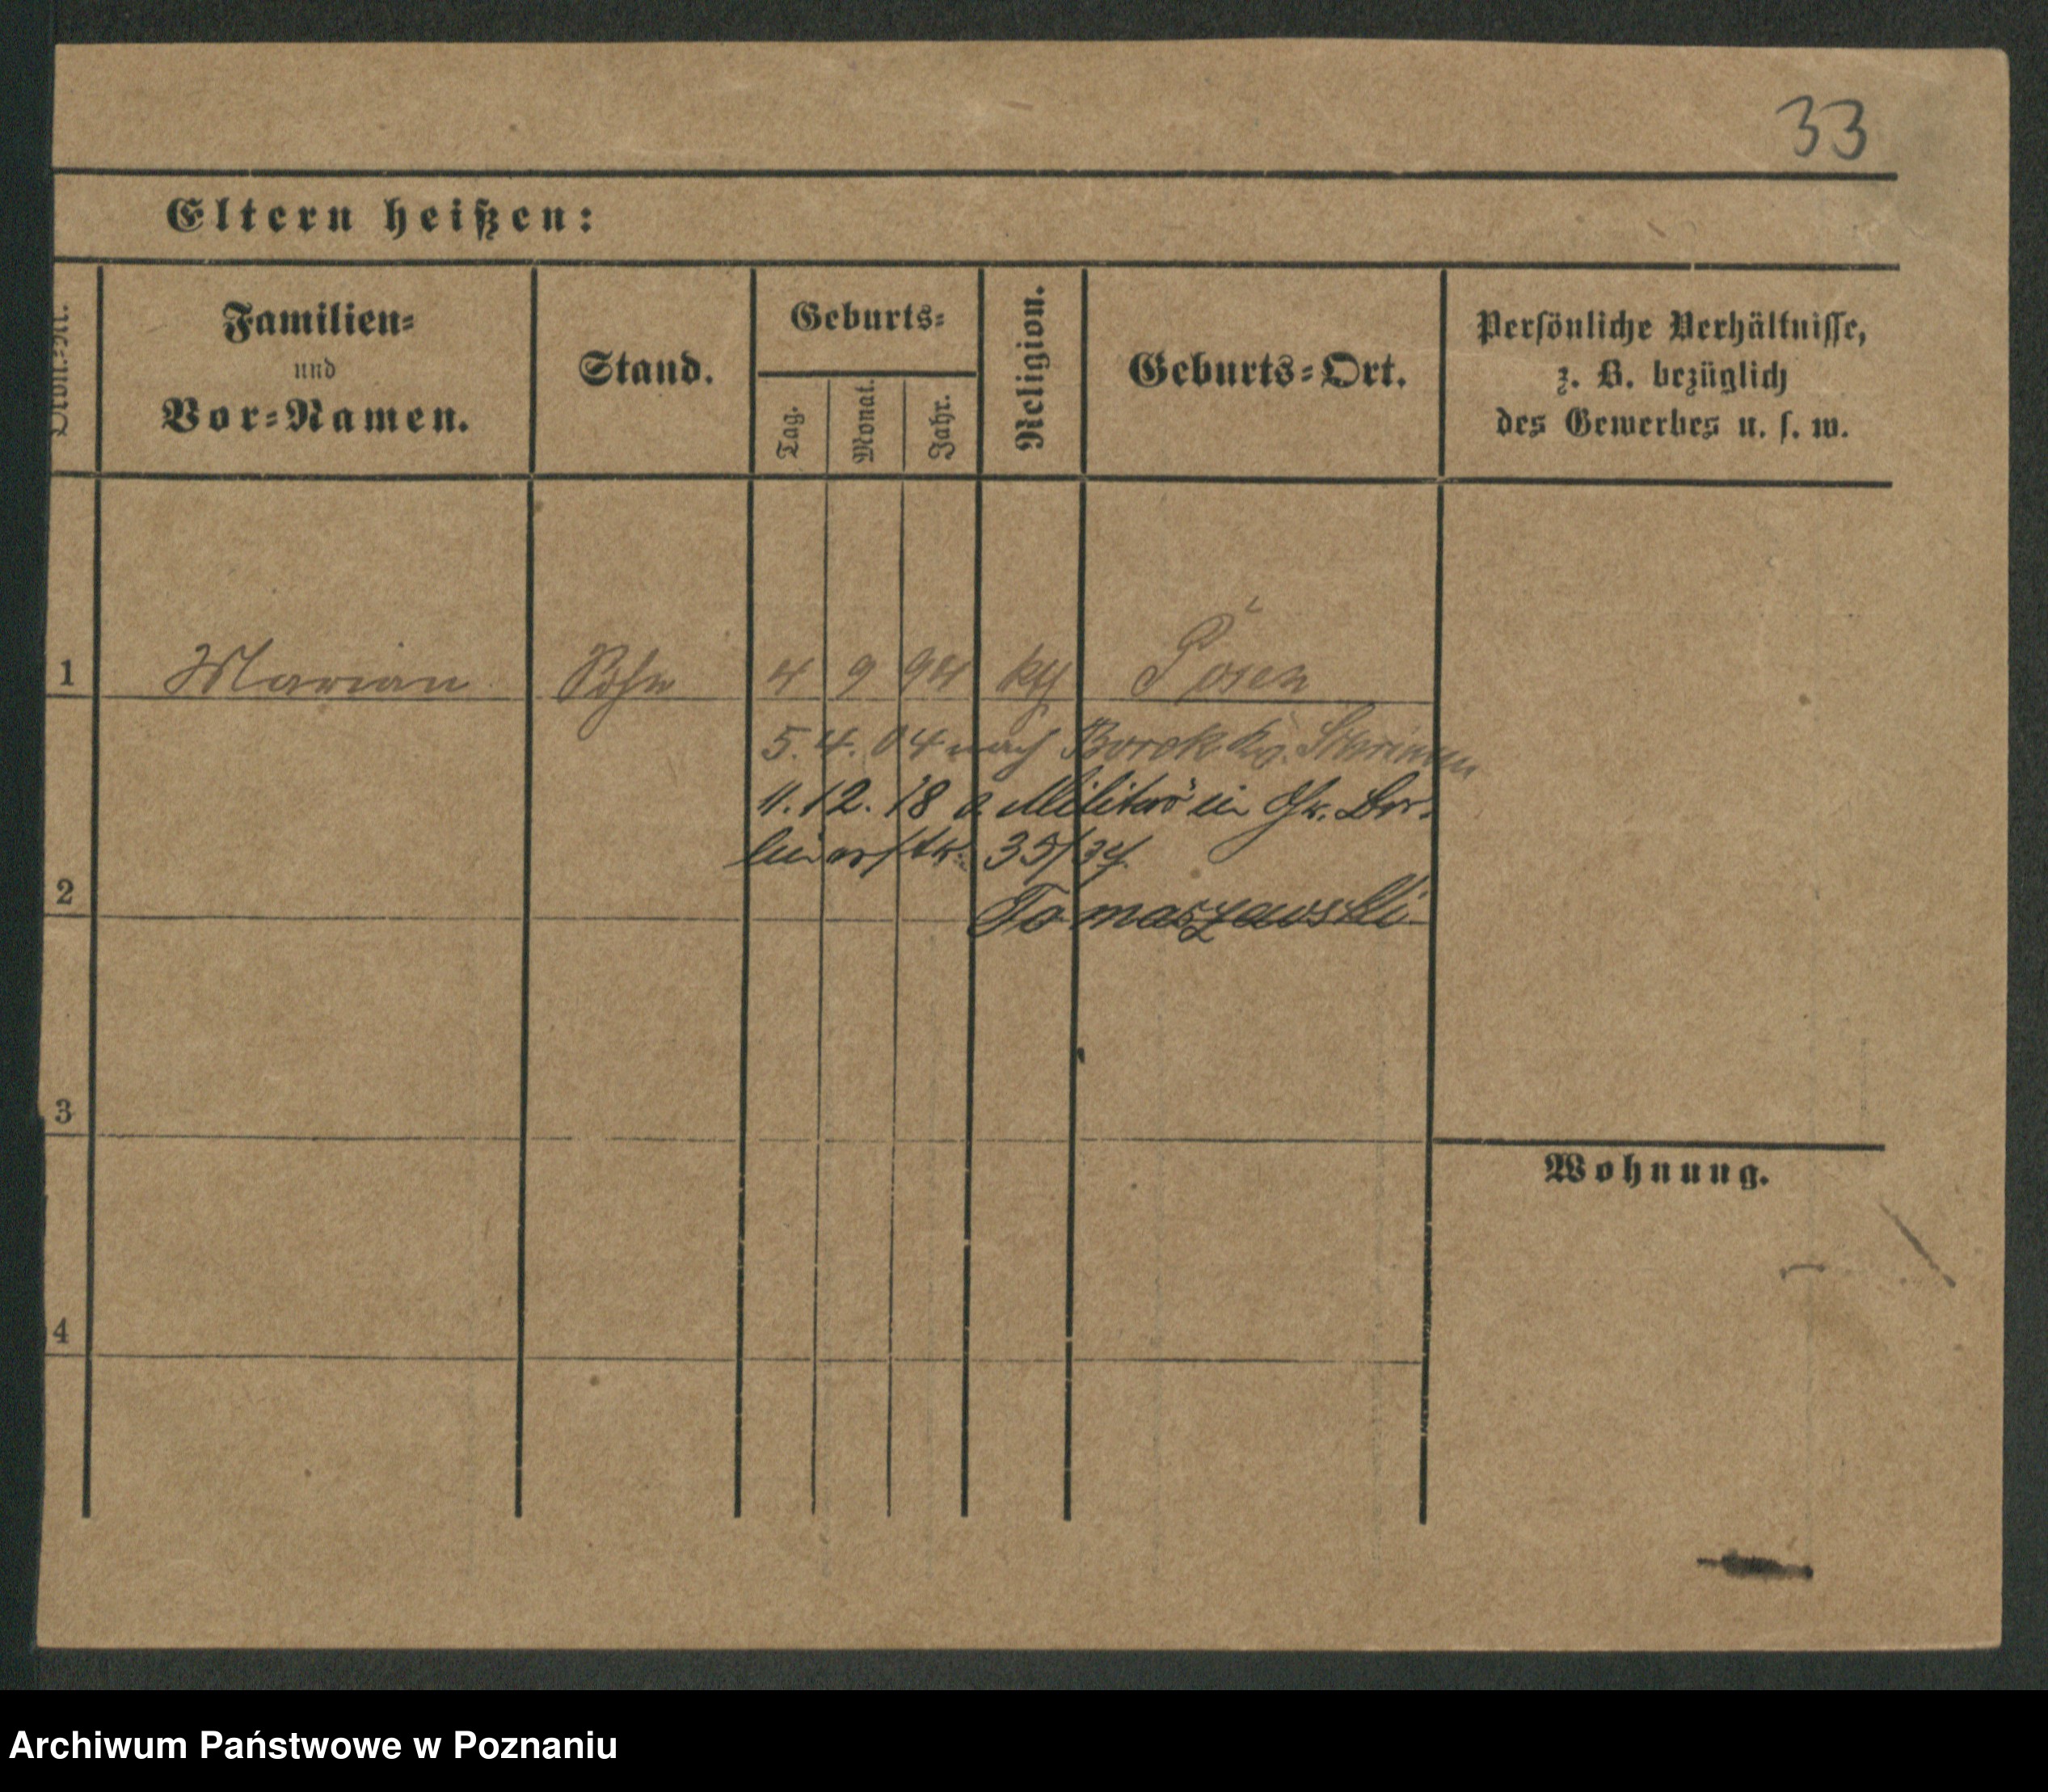 33
Eltern heißen:
Familien=
und
Vor=Namen.
Stand.
Geburts=
Tag.
Monat.
Jahr.
Religion.
Geburts=Ort.
Persönliche Verhältnisse,
z. B. bezüglich
des Gewerbes u. s. w.
1 Marian Sohn 4 9 94 kth Posen
5. 4. 04 nach Borek
11. 12. 18 a Militär in
35/37
2 Tomaszewski
3
Wohnung.
4
Archiwum Państwowe w Poznaniu